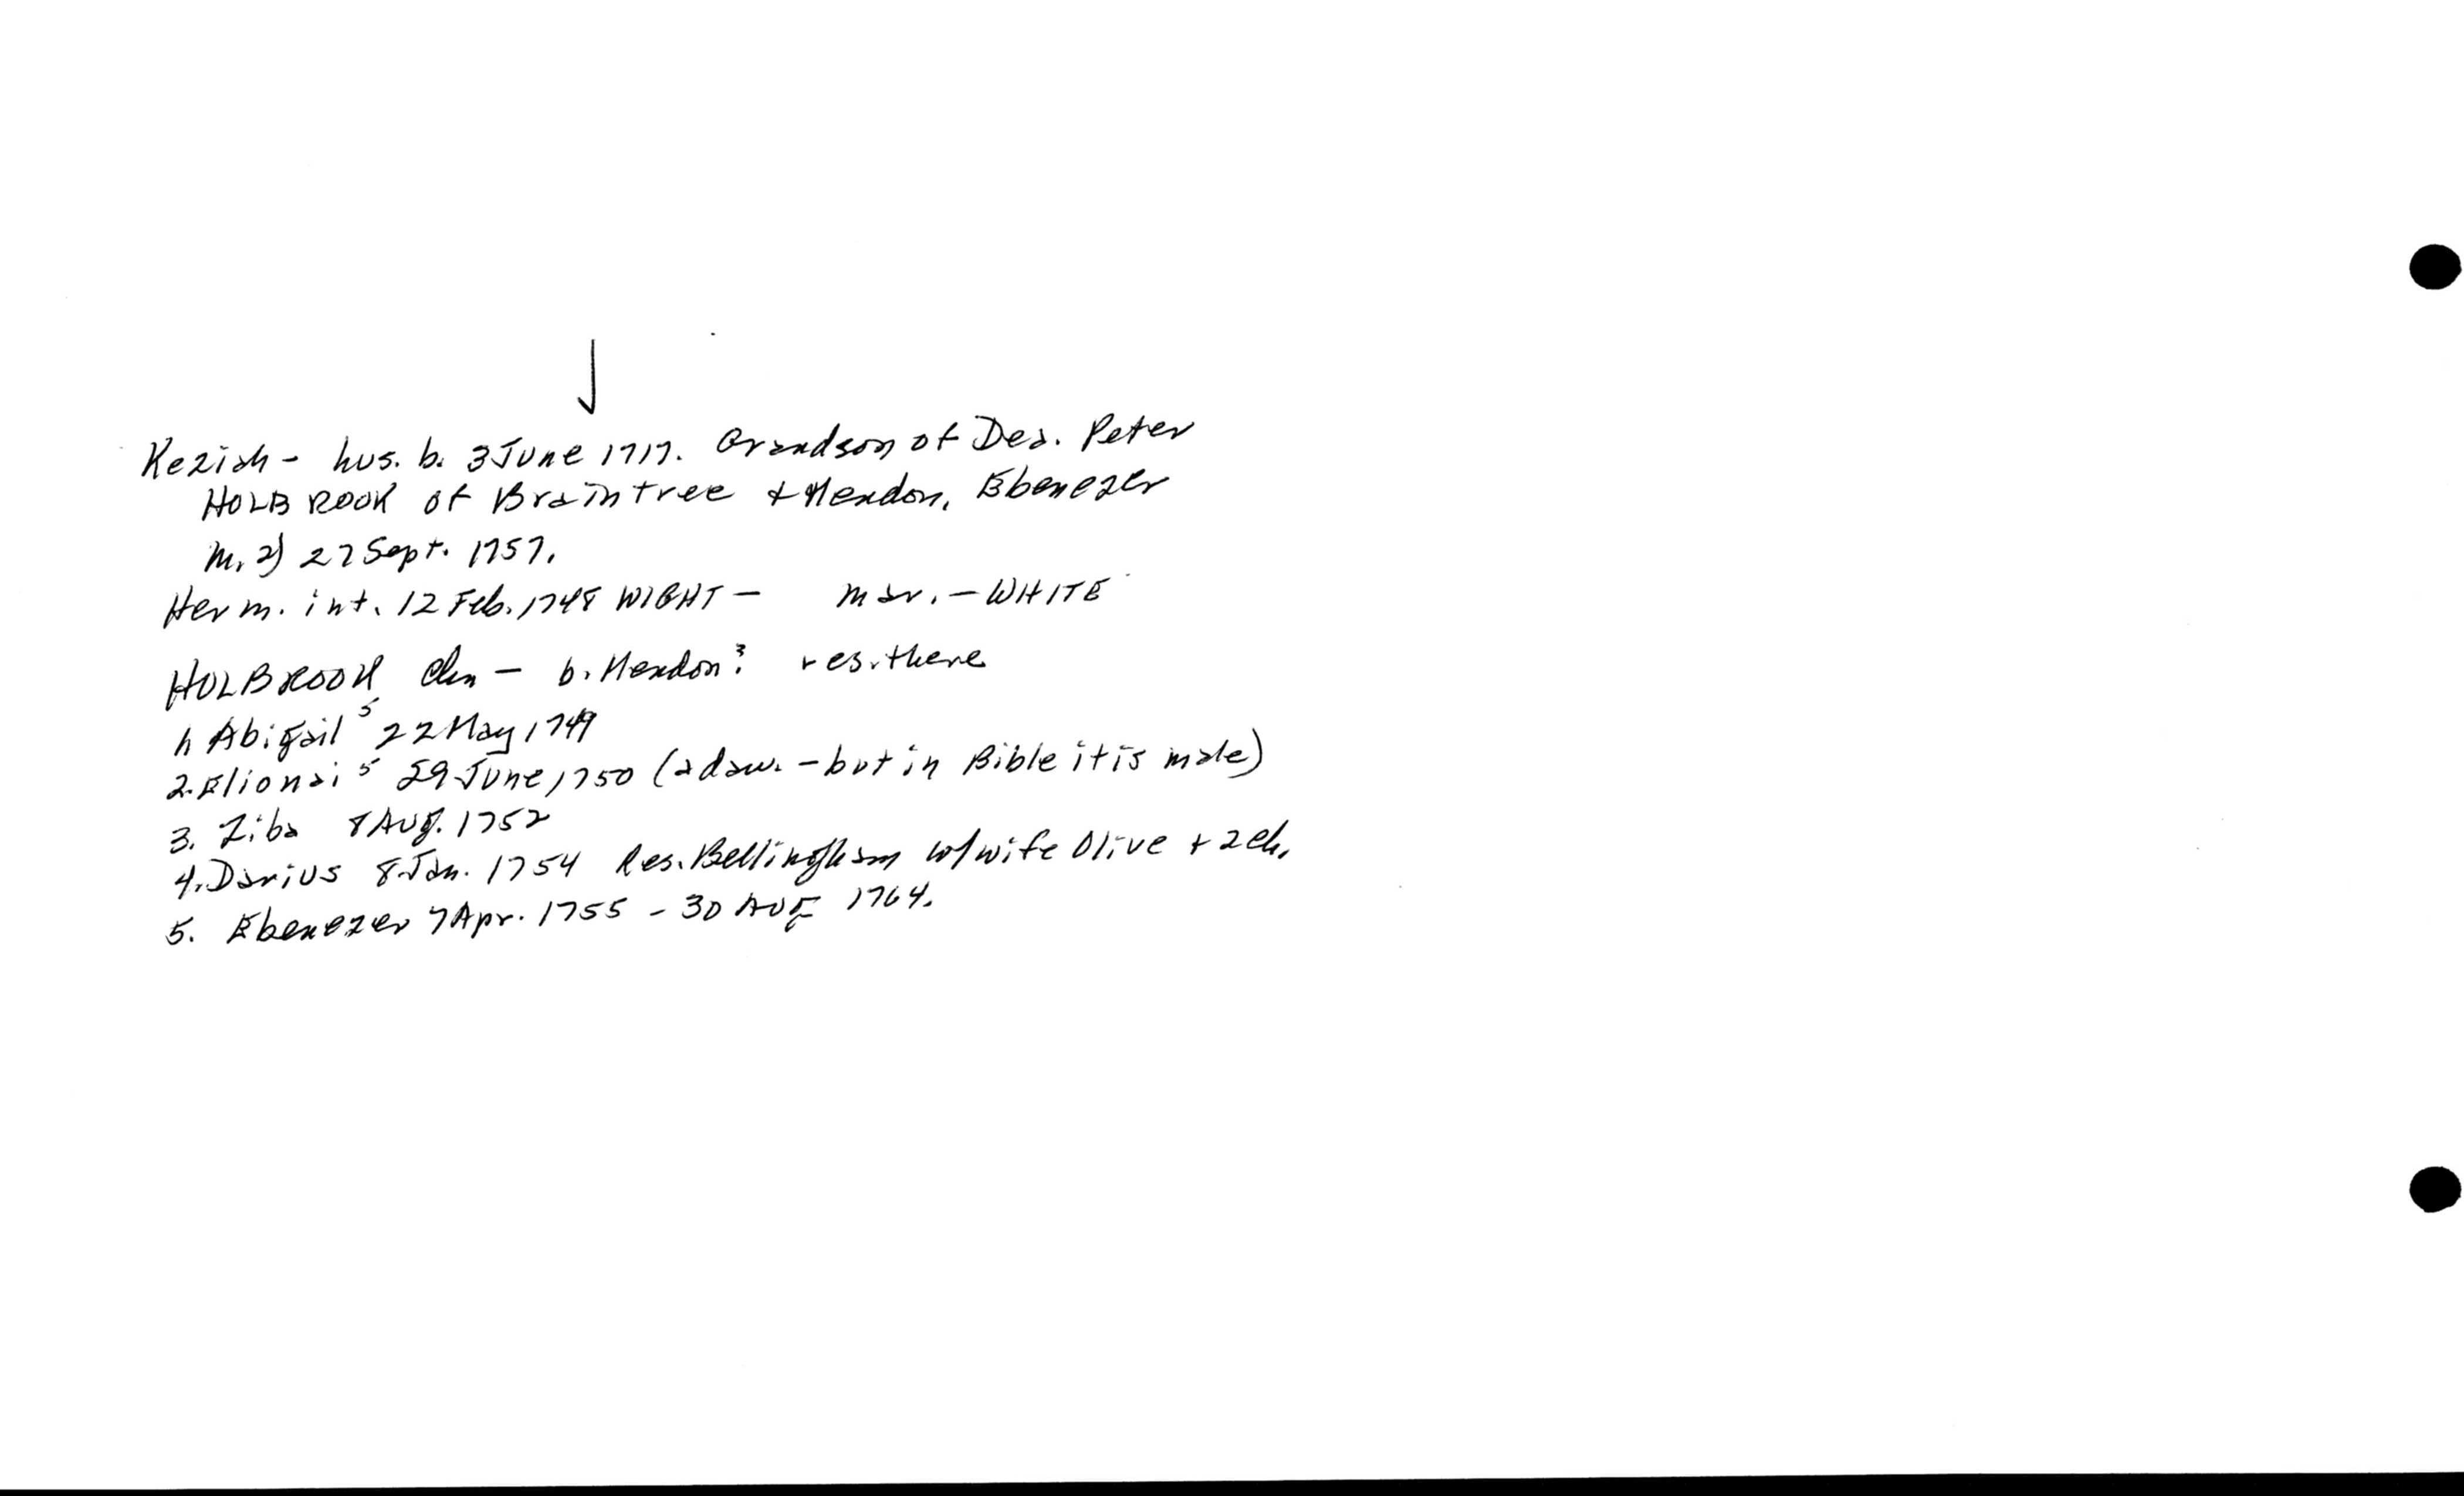 Keziah - hus. b. 3 June 1717. Grandson of Dea. Peter
HOLBROOK of Braintree + Mendon. Ebenezer
m. 2) 27 Sept. 1757.
Her m. int. 12 Feb. 1748 WIGHT - mar. - WHITE
HOLBROOK chn - b. Mendon? res. there
1. Abigail 5 22 May 1749
2. Elionai 5 29 June, 1750 (a daw. - but in Bible it is male)
3. Ziba 8 Aug. 1752
4. Darius 8 Jan. 1754 Res. Bellingham w/wife Olive + 2 ch.
5. Ebenezer 7 Apr. 1755 - 30 Aug 1764.